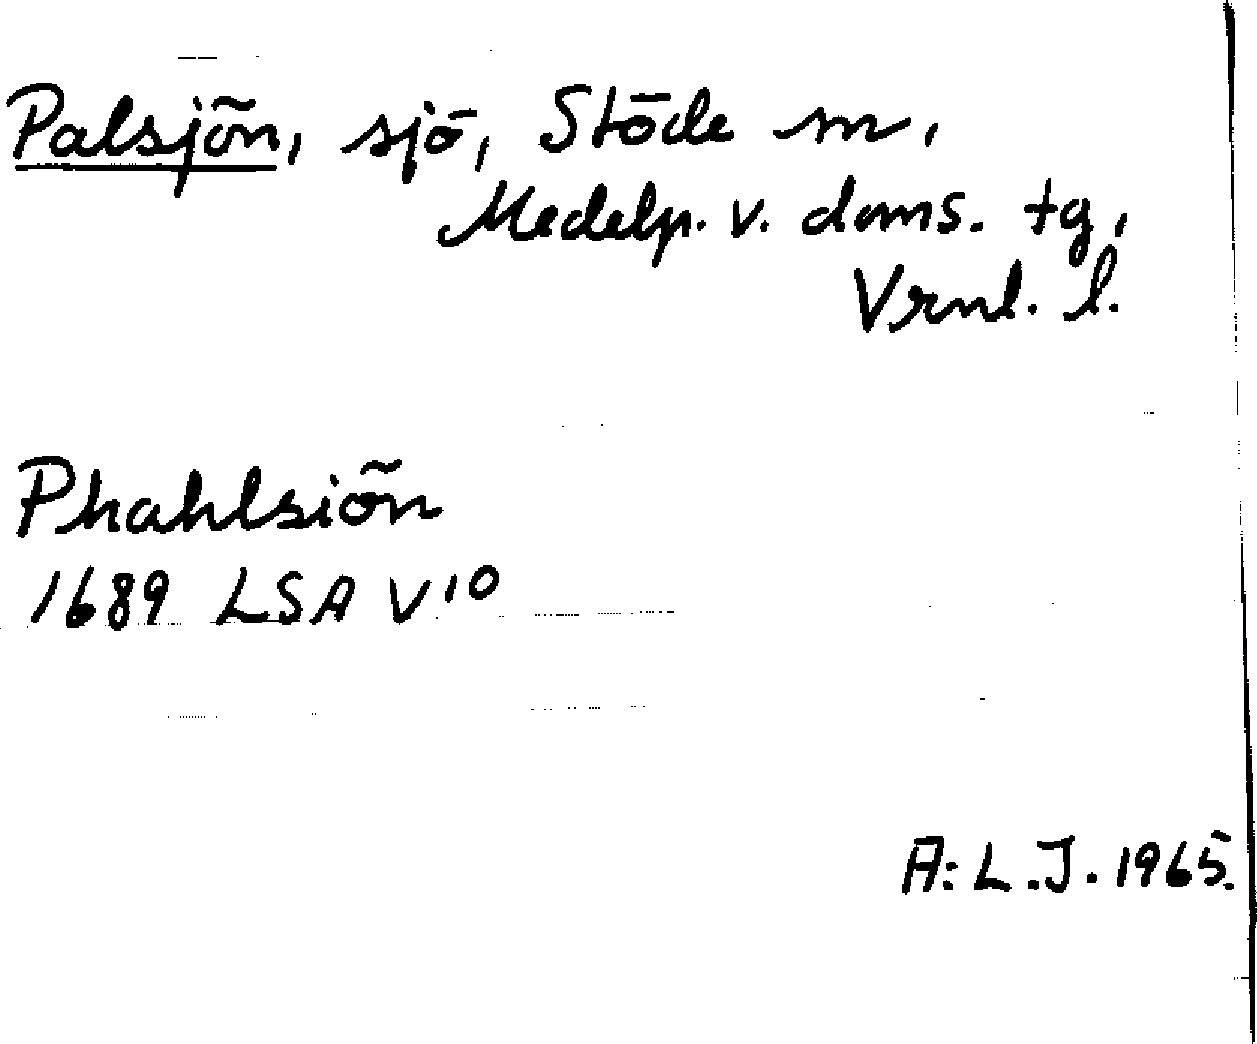 Palsjön, sjö, Stöde sn,
Medelp. v. doms. tg,
Vrnl. l.
Phahlsiön
1689 LSA V10
A: L.J. 1965.